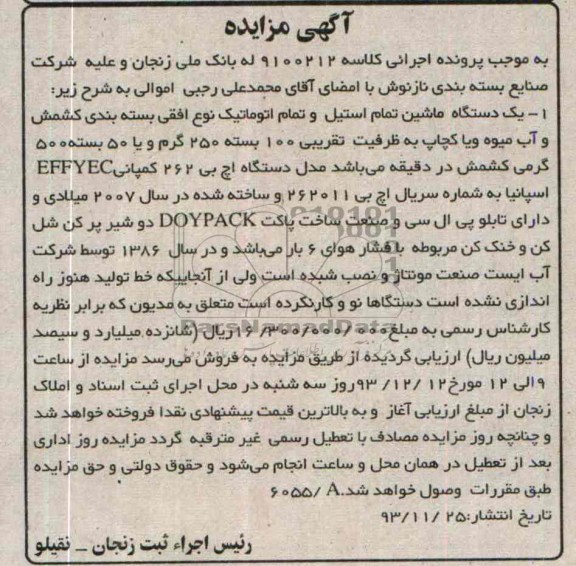 آگهی مزایده
به موجب پرونده اجرائی کلاسه ۹۱۰۰۲۱۲ له بانک ملی زنجان و علیه شرکت
صنایع بسته بندی نازنوش با امضای آقای محمدعلی رجبی اموالی به شرح زیر:
۱- یک دستگاه ماشین تمام استیل و تمام اتوماتیک نوع افقی بسته بندی کشمش
و آب میوه ویا کچاپ به ظرفیت تقریبی ۱۰۰ بسته ۲۵۰ گرم و یا ۵۰ بسته۵۰۰
گرمی کشمش در دقیقه می‌باشد مدل دستگاه اچ بی ۲۶۲ کمپانیEFFYEC
اسپانیا به شماره سریال اچ بی ۲۶۲۰۱۱ و ساخته شده در سال ۲۰۰۷ میلادی و
دارای تابلو پی ال سی و صنعت ساخت پاکت DOYPACK دو شیر پر کن شل
کن و خنک کن مربوطه با فشار هوای ۶ بار می‌باشد و در سال ۱۳۸۶ توسط شرکت
آب ایست صنعت مونتاژ و نصب شده است ولی از آنجاییکه خط تولید هنوز راه
اندازی نشده است دستگاها نو و کارنکرده است متعلق به مدیون که برابر نظریه
کارشناس رسمی به مبلغ۱۶/۳۰۰/۰۰۰/۰۰۰ریال (شانزده میلیارد و سیصد
میلیون ریال) ارزیابی گردیده از طریق مزایده به فروش می‌رسد مزایده از ساعت
۹الی ۱۲ مورخ۱۲ /۱۲/ ۹۳روز سه شنبه در محل اجرای ثبت اسناد و املاک
زنجان از مبلغ ارزیابی آغاز و به بالاترین قیمت پیشنهادی نقدا فروخته خواهد شد
و چنانچه روز مزایده مصادف با تعطیل رسمی غیر مترقبه گردد مزایده روز اداری
بعد از تعطیل در همان محل و ساعت انجام می‌شود و حقوق دولتی و حق مزایده
طبق مقررات وصول خواهد شد.A /۶۰۵۵
تاریخ انتشار:۲۵ /۱۱/ ۹۳
رئیس اجراء ثبت زنجان _ نقیلو